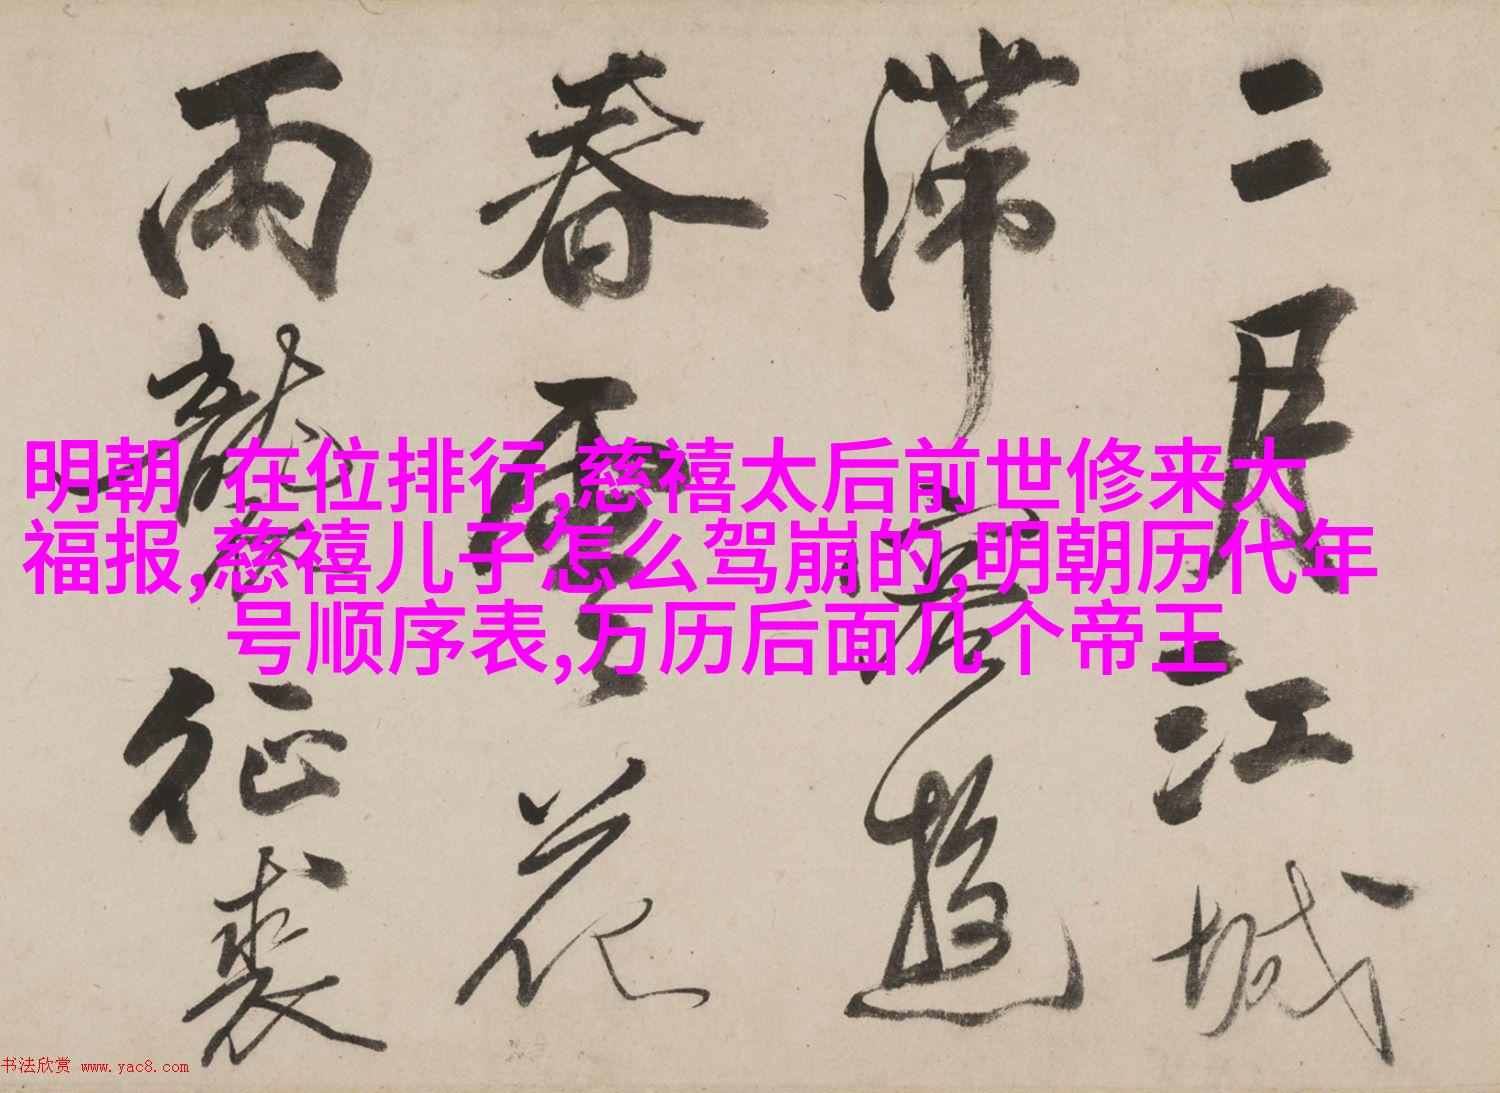 二月江城
滞客遊
春雲花
雨龍征裘
明朝 在位排行,慈禧太后前世修来大
福报,慈禧儿子怎么驾崩的,明朝历代年
号顺序表,万历后面几个帝王
书法欣赏 www.yac8.com